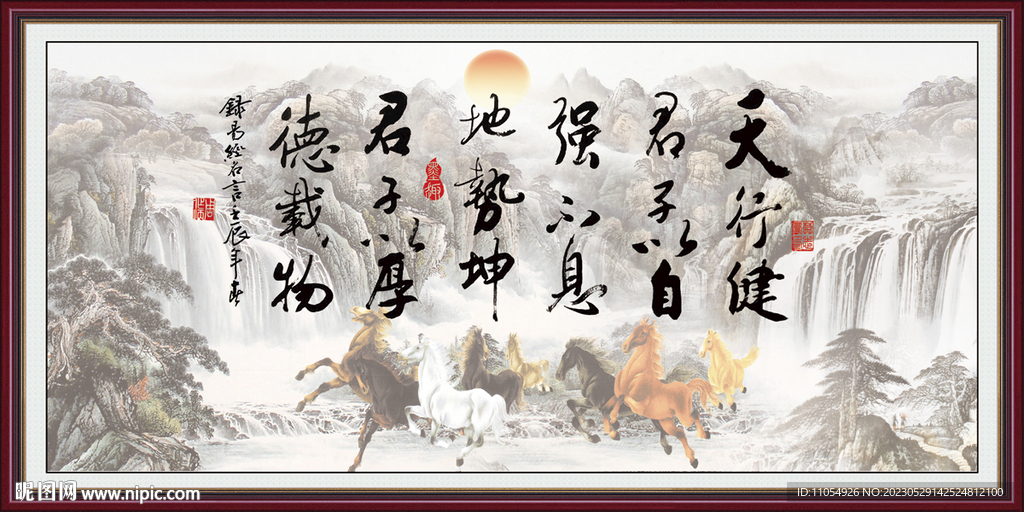 天行健
君子以自
强不息
地勢坤
君子以厚
德載物
録易經名言壬辰年春
昵图网 www.nipic.com
ID:11054926 NO:20230529142524812100